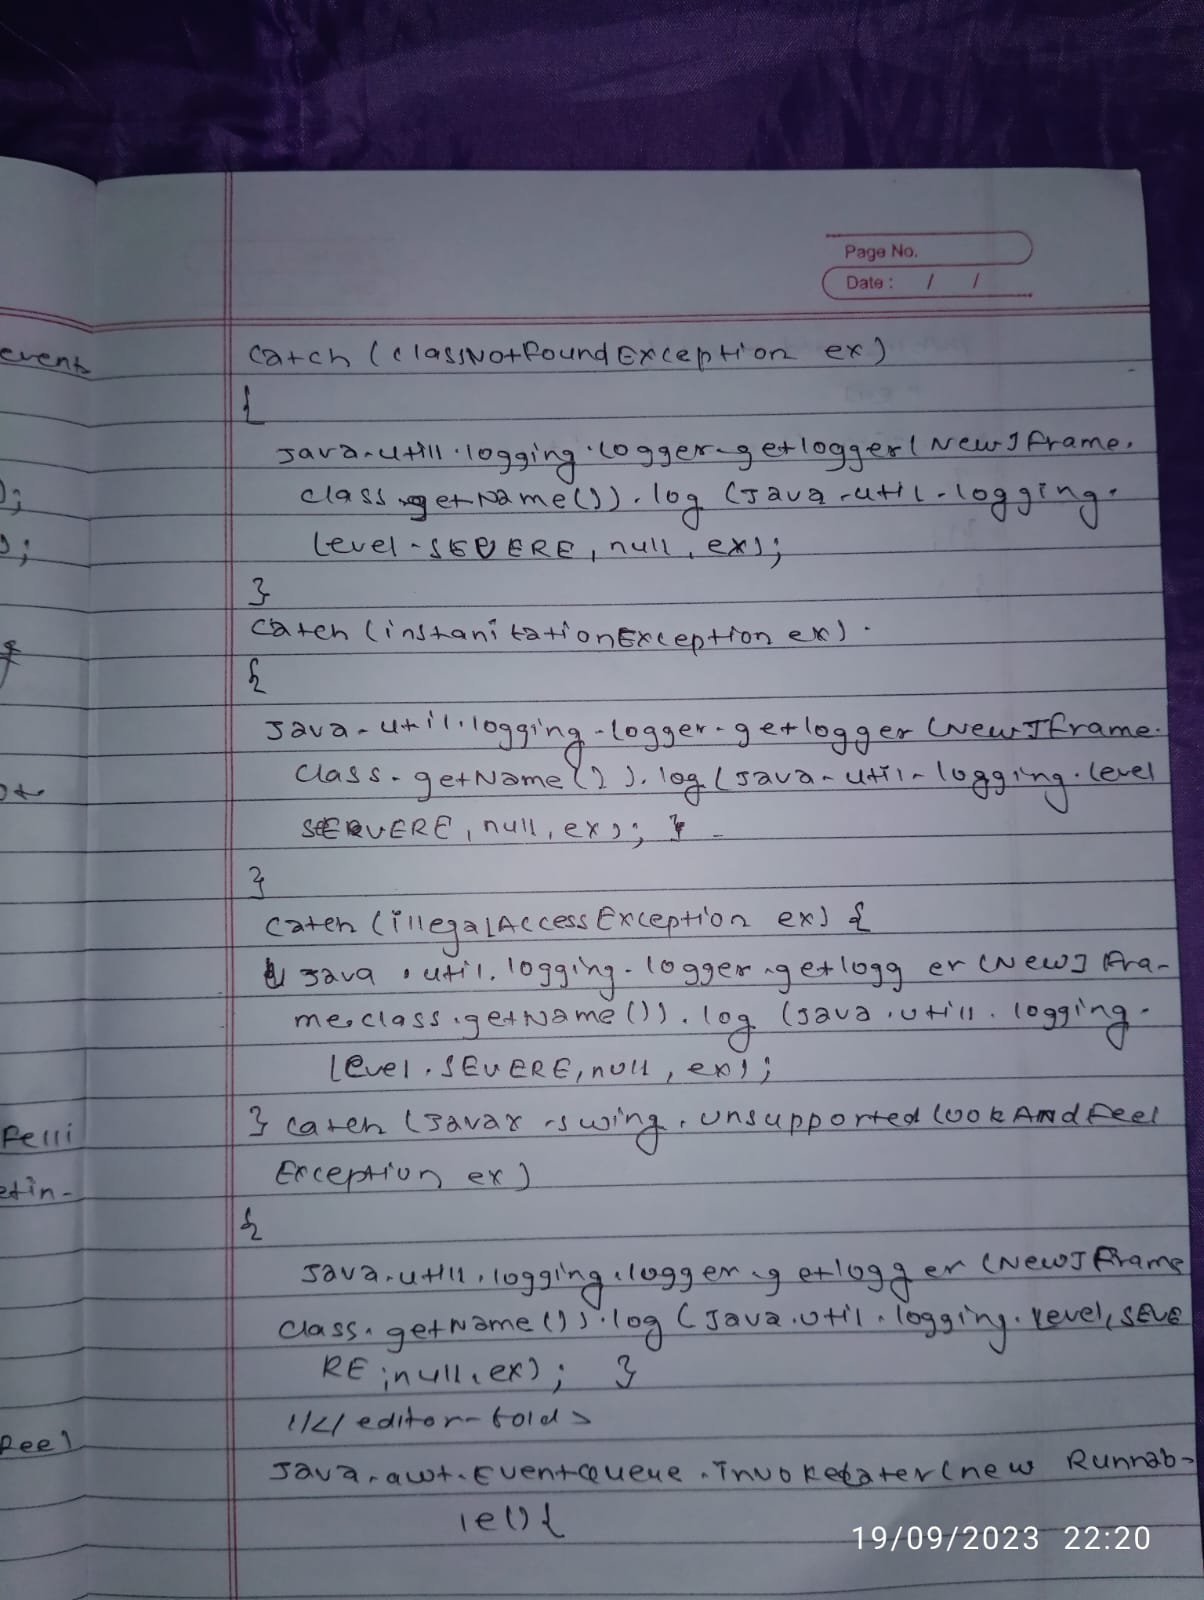 Page No.
Date : / /
events
catch (classNotFoundException ex)
{
java.utill.logging.logger.getlogger(NewJFrame.
class.getName()).log(java.util.logging.
Level.SEVERE, null, ex);
);
);
}
catch (instanitationException ex).
{
java.util.logging.logger.getlogger(NewJFrame.
class.getName()).log(java.util.logging.level
SERVERE, null, ex); }
}
catch (illegalAccessException ex) {
java.util.logging.logger.getlogger(NewJFra-
me.class.getName()).log(java.utill.logging.
level.SEVERE, null, ex);
Felli
} catch (javax.swing.unsupported LookANDFeel
Exception ex)
etin-
{
java.utill.logging.logger.getlogger(NewJFrame
class.getName()).log(java.util.logging.Level,SEVE
RE;null,ex); }
//</editor-fold>
Feel
java.awt.EventQueue.invokeLater(new Runnab-
le(){
19/09/2023 22:20